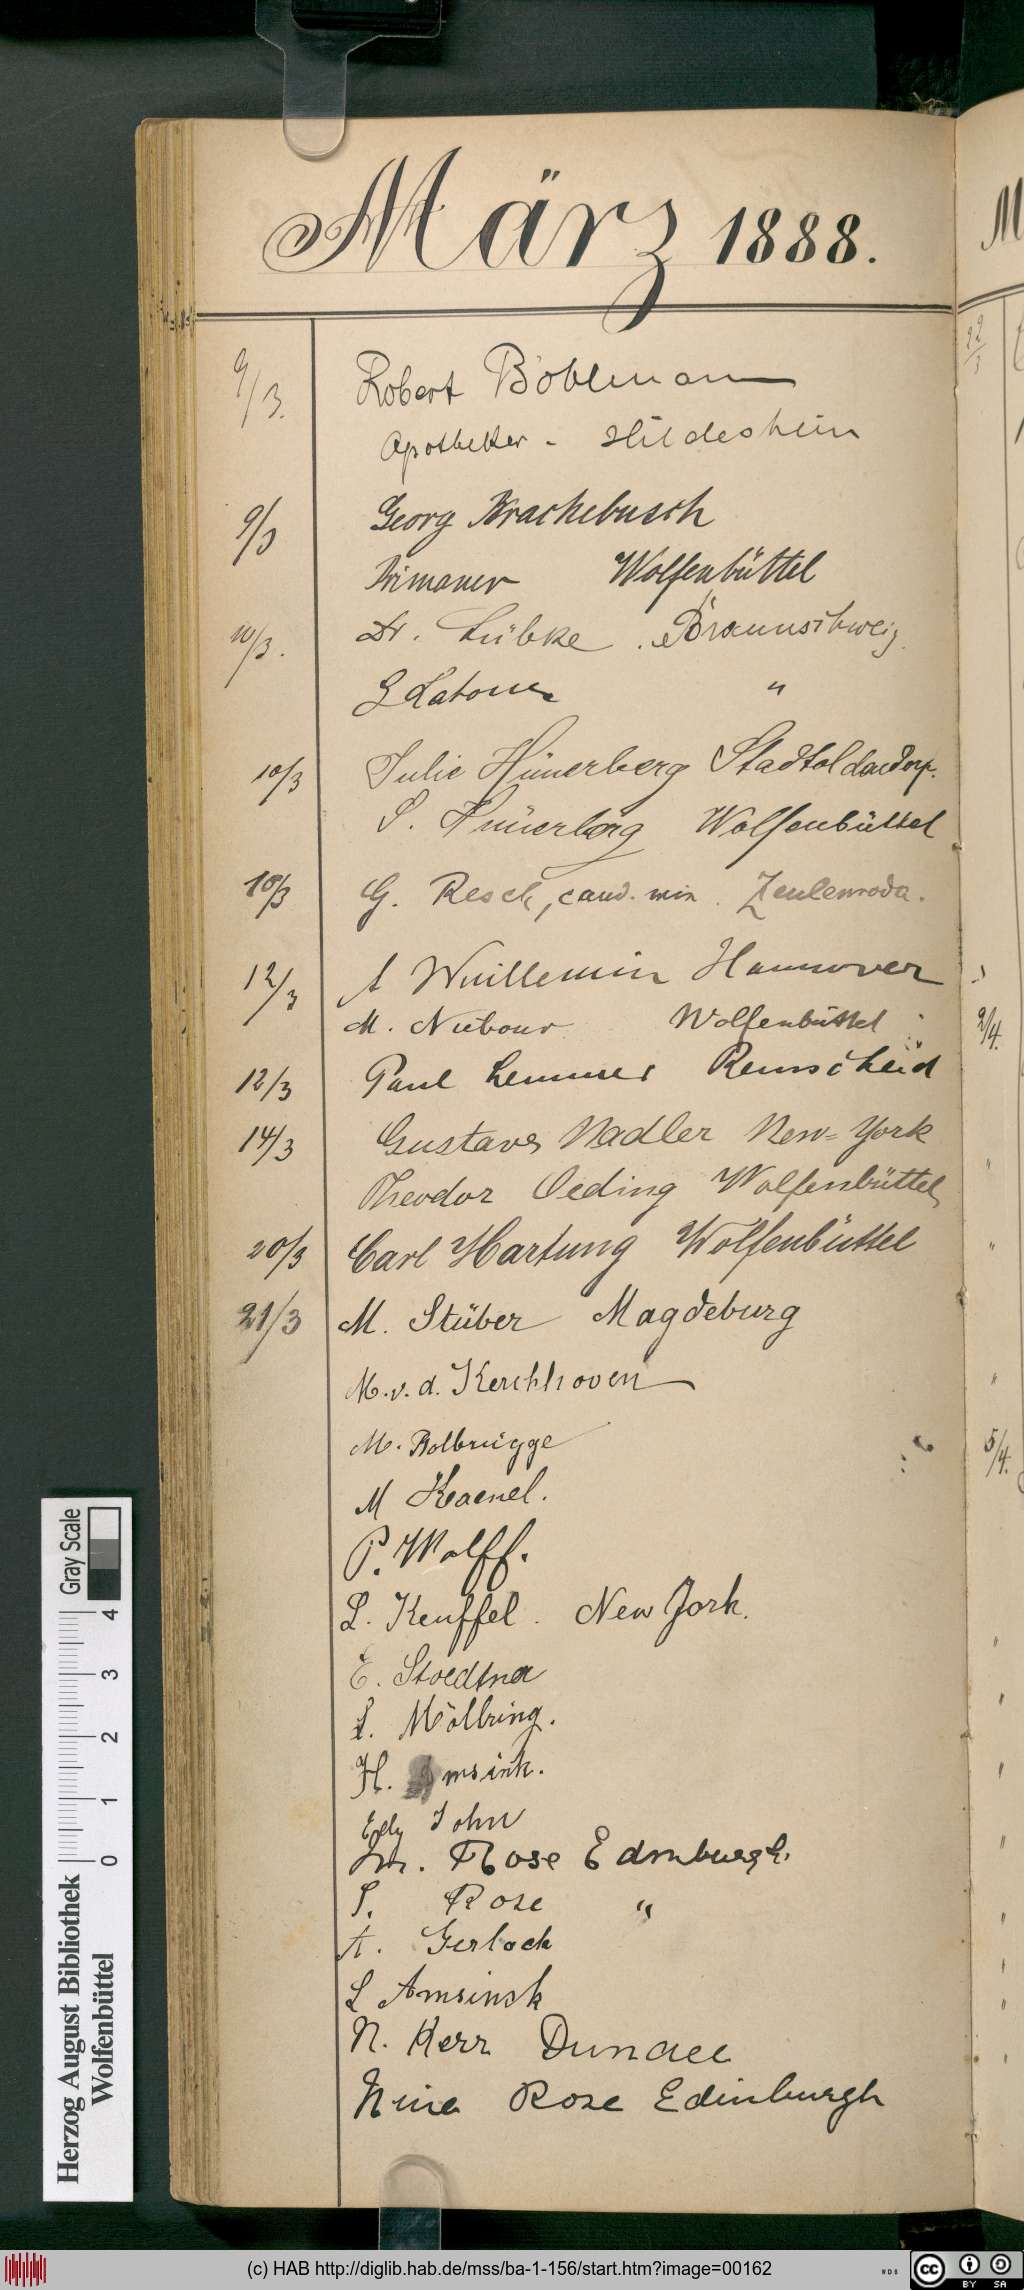 März 1888.
9/3. Robert Bohlmann
Apotheker - Hildesheim
9/3 Georg Krackebusch
Primaner Wolfenbüttel
10/3. Dr. Lübke. Braunschweig.
"
10/3 Julie Hünerberg Stadtoldendorf.
S. Hünerberg Wolfenbüttel
10/3 G. Resch, cand. min. Zeulenroda.
12/3 A Wuillemin Hannover
M. Niebour Wolfenbüttel
12/3 Paul Lemmer Remscheid
14/3 Gustave Nadler New-York
Theodor Oeding Wolfenbüttel
20/3 Carl Hartung Wolfenbüttel
21/3 M. Stüber Magdeburg
M. v. d. Kerckhoven
M. Bolbrügge
M Kaenel.
P. Wolff.
L. Keuffel. New York.
E.
Möllring.
H. Amsink.
Edy John
M. Rose Edinburgh.
S. Rose "
A. Gerlach
L Amsinck
N. Kerr Dundee
Nina Rose Edinburgh
22/3
2/4.
5/4.
Gray Scale
0 1 2 3 4
Herzog August Bibliothek
Wolfenbüttel
(c) HAB http://diglib.hab.de/mss/ba-1-156/start.htm?image=00162
WDB
cc BY SA